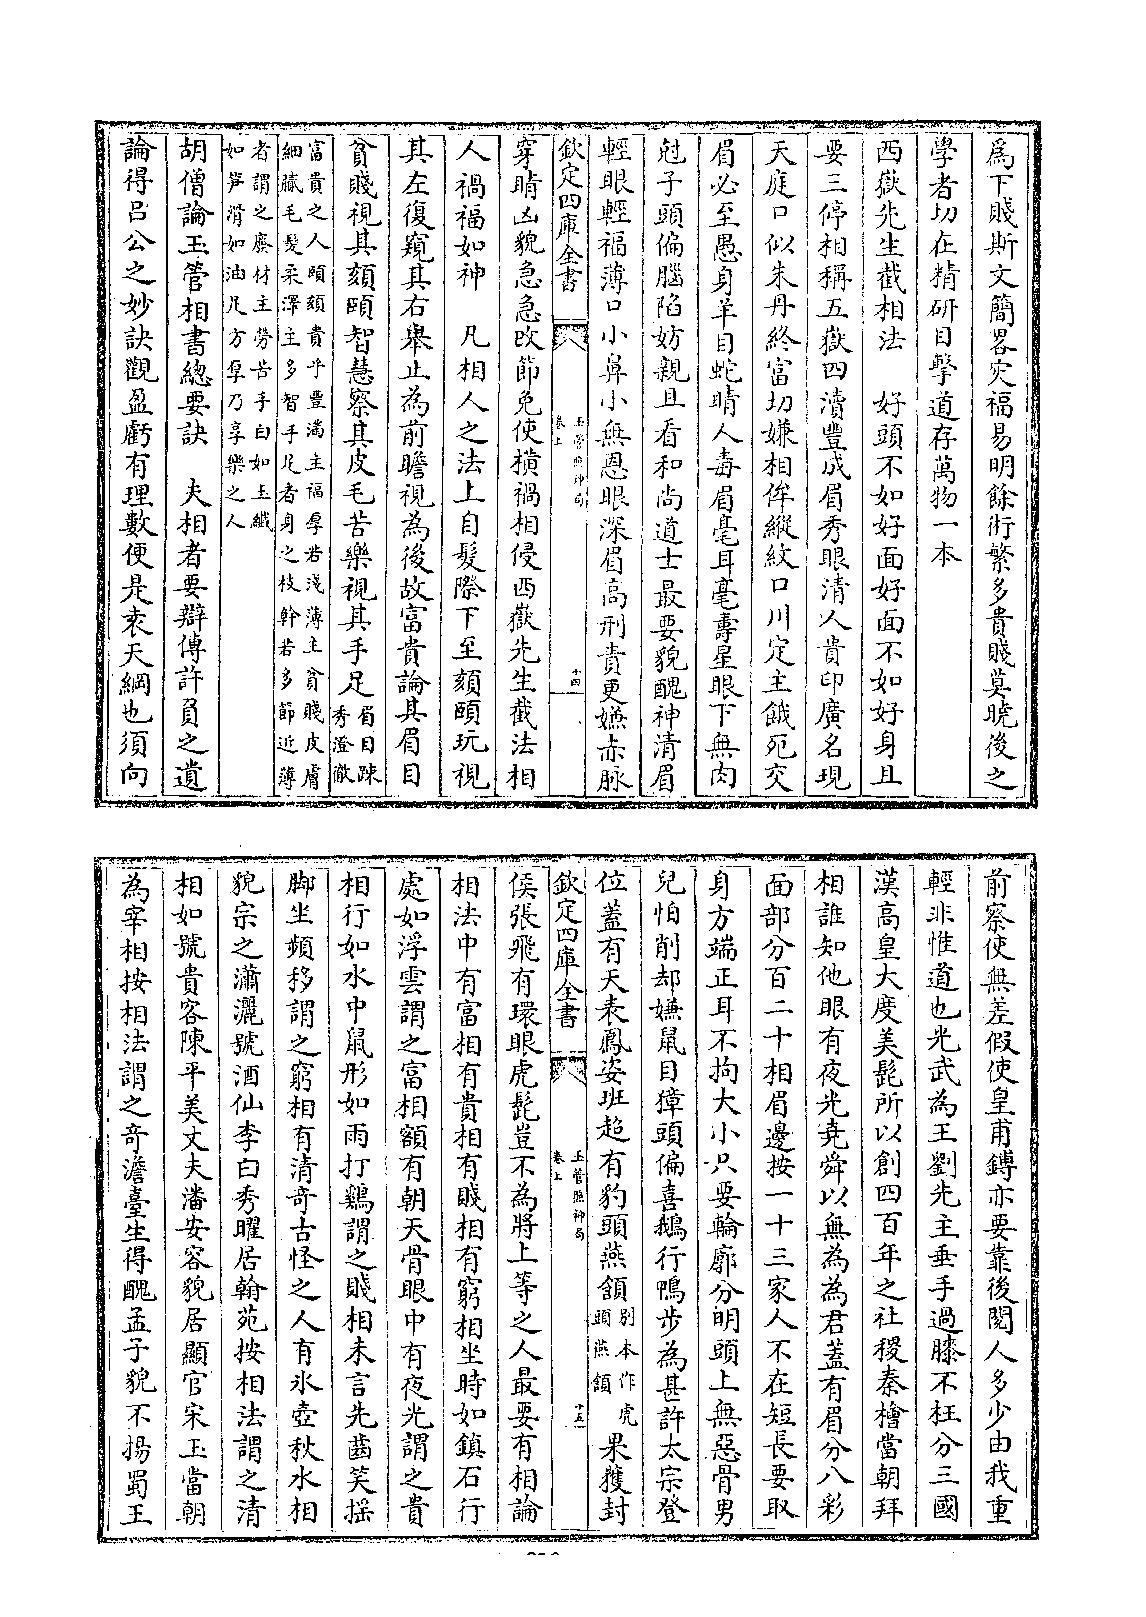 為下賤斯文簡畧灾福易明餘術繁多貴賤莫曉後之
學者切在精研目擊道存萬物一本
西嶽先生截相法　好頭不如好面好面不如好身且
要三停相稱五嶽四瀆豐成眉秀眼清人貴印廣名現
天庭口似朱丹終富切嫌相侔縱紋口川定主餓死交
眉必至愚身羊目蛇睛人毒眉毫耳毫壽星眼下無肉
尅子頭偏腦陷妨親且看和尚道士最要貌醜神清眉
輕眼輕福薄口小鼻小無恩眼深眉高刑責更嫌赤脉
欽定四庫全書
玉管照神局
卷上
十四
穿睛凶貌急急改節免使橫禍相侵西嶽先生截法相
人禍福如神　凡相人之法上自髮際下至頦頤玩視
其左復窺其右舉止為前瞻視為後故富貴論其眉目
貧賤視其頦頤智慧察其皮毛苦樂視其手足眉目踈
秀澄徹
富貴之人頤頦貴乎豊滿主福厚若淺薄主貧賤皮膚
細膩毛髮柔澤主多智手足者身之枝幹若多節近薄
者謂之賡材主勞苦手白如玉纖
如笋滑如油足方厚乃享樂之人
胡僧論玉管相書總要訣　夫相者要辯傳許負之遺
論得呂公之妙訣觀盈虧有理數便是袁天綱也須向
前察使無差假使皇甫鏄亦要靠後閱人多少由我重
輕非惟道也光武為王劉先主垂手過膝不枉分三國
漢高皇大度美髭所以創四百年之社稷秦檜當朝拜
相誰知他眼有夜光堯舜以無為為君蓋有眉分八彩
面部分百二十相眉邊按一十三家人不在短長要取
身方端正耳不拘大小只要輪廓分明頭上無惡骨男
兒怕削却嫌鼠目獐頭偏喜鵝行鴨步為甚許太宗登
位蓋有天表鳳姿班超有豹頭燕頷别本作虎
頭燕頷果獲封
欽定四庫全書
玉管照神局
卷上
十五
侯張飛有環眼虎髭豈不為將上等之人最要有相論
相法中有富相有貴相有賤相有窮相坐時如鎮石行
處如浮雲謂之富相額有朝天骨眼中有夜光謂之貴
相行如水中鼠形如雨打鷄謂之賤相未言先齒笑搖
脚坐頻移謂之窮相有清奇古怪之人有氷壺秋水相
貌宗之瀟灑號酒仙李白秀曜居翰苑按相法謂之清
相如號貴客陳平美丈夫潘安容貌居顯官宋玉當朝
為宰相按相法謂之奇澹臺生得醜孟子貌不揚蜀王